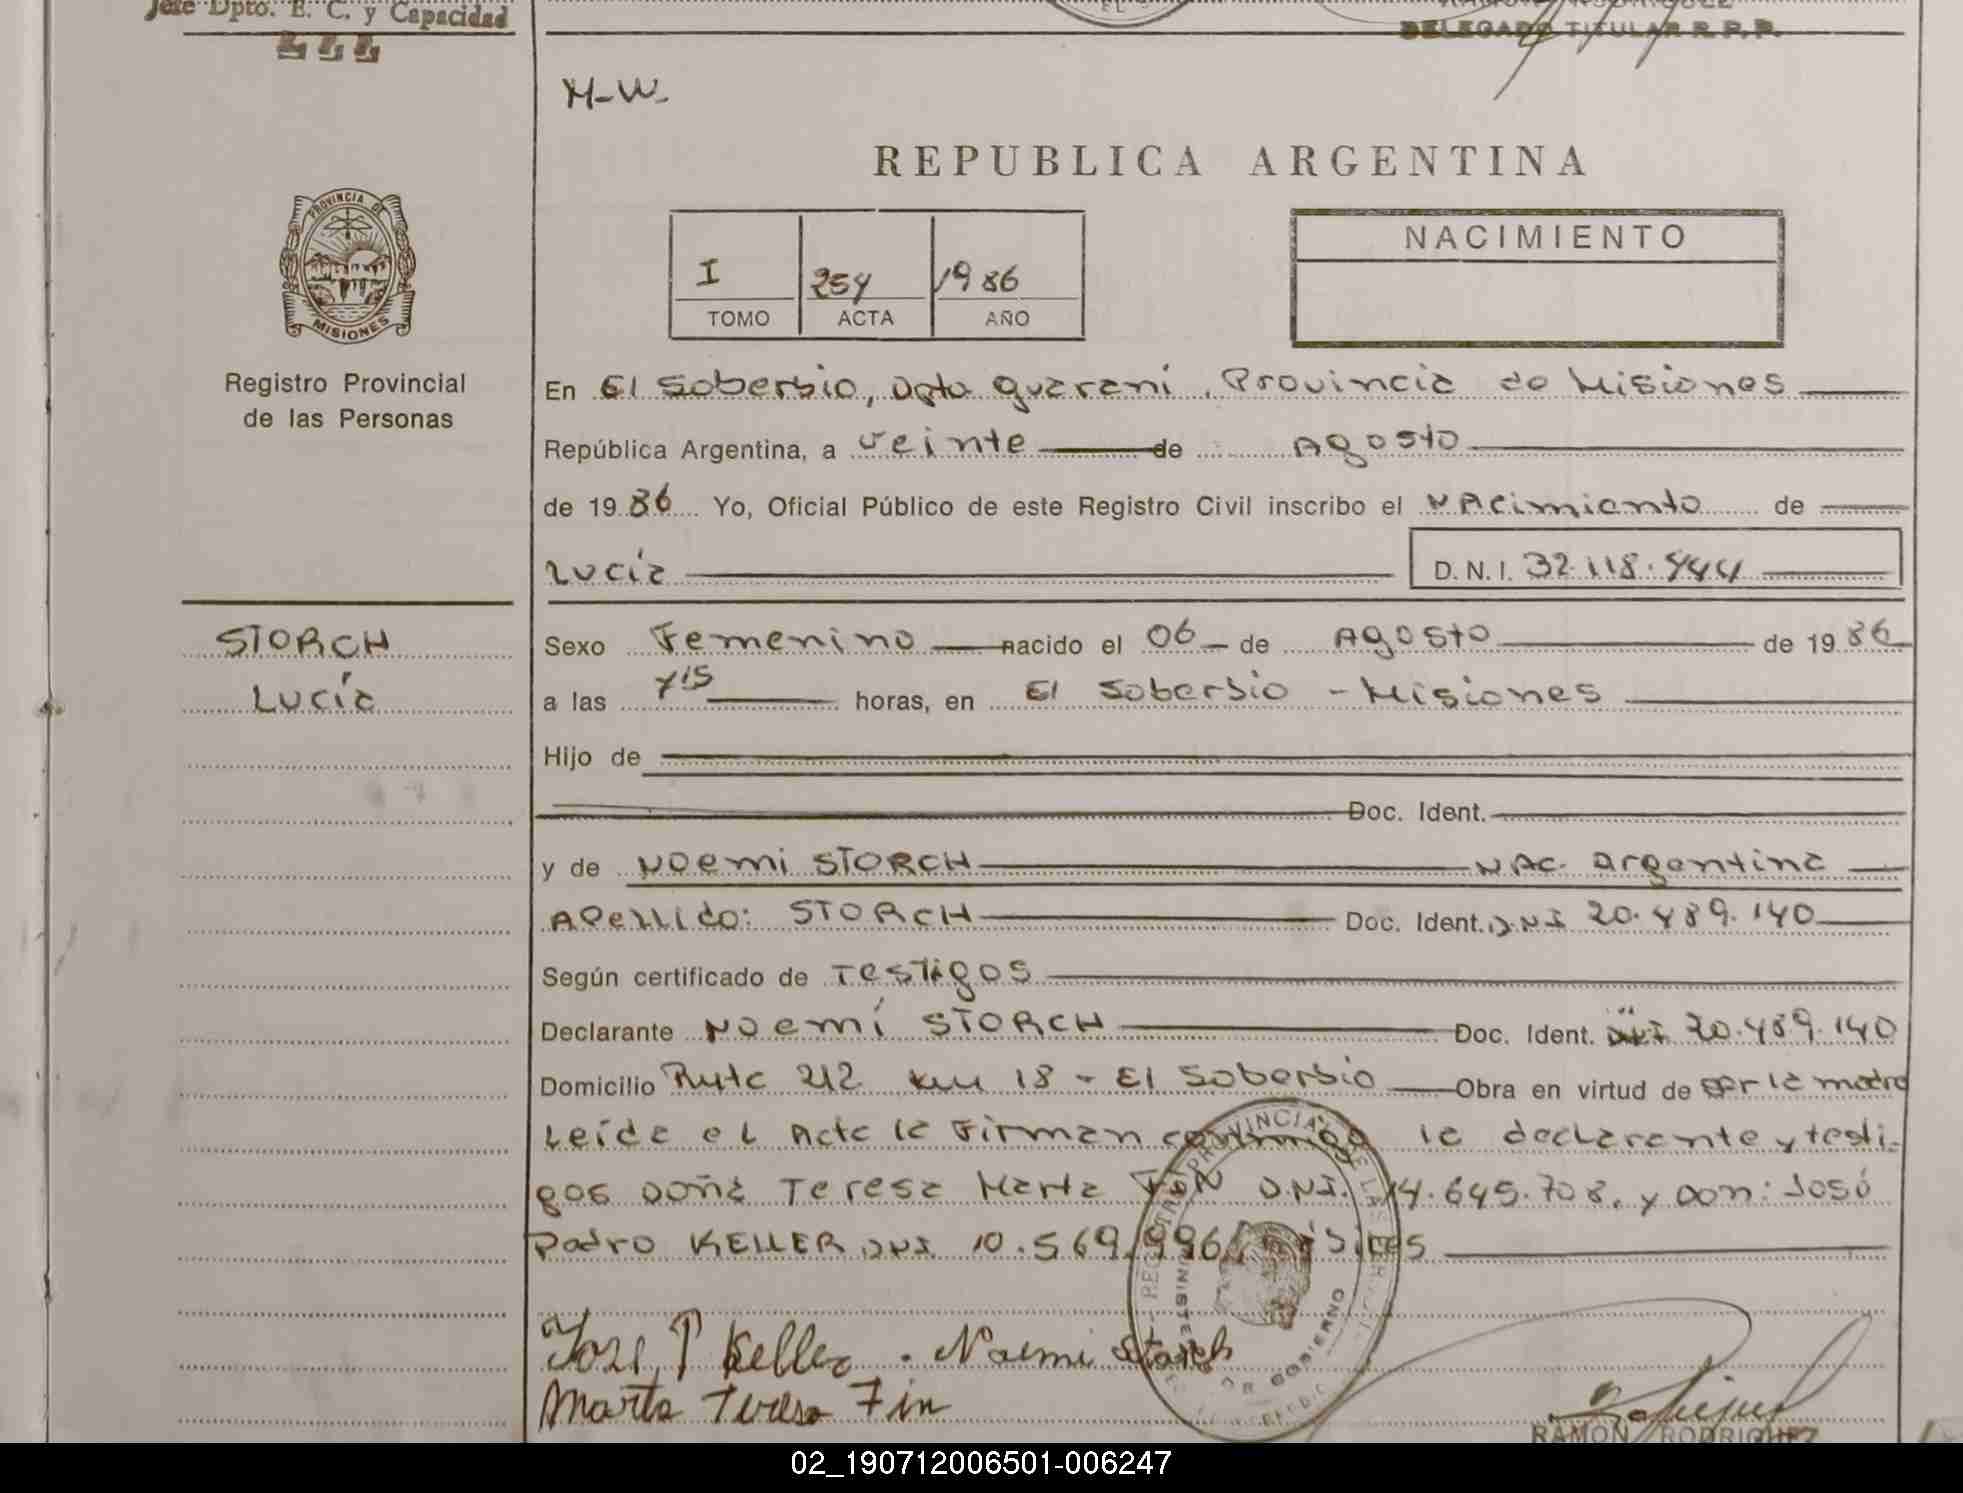 Jefe Dpto. E. C. y Capacidad
DELEGADO TITULAR R.P.P.
M-W-
REPUBLICA ARGENTINA
PROVINCIA DE MISIONES
I 254 1986
TOMO ACTA AÑO
NACIMIENTO
Registro Provincial
de las Personas
En El Soberbio, Dpto Guaraní, Provincia de Misiones
República Argentina, a veinte de Agosto
de 1986 Yo, Oficial Público de este Registro Civil inscribo el NAcimiento de
Lucía D.N.I. 32.118.444
STORCH
Lucía
Sexo Femenino nacido el 06 de Agosto de 1986
a las 7 15 horas, en El Soberbio - Misiones
Hijo de
Doc. Ident.
y de Noemi STORCH NAC. Argentina
Apellido: STORCH Doc. Ident. DNI 20.489.140
Según certificado de Testigos
Declarante Noemí STORCH Doc. Ident. DNI 20.489.140
Domicilio Ruta 212 km 18 - El Soberbio Obra en virtud de ser la madre
Leída el Acta la Firman conmigo la declarante y testi-
gos Doña Teresa Marta DNI. 14.645.708. y Don: José
Pedro KELLER DNI 10.569.996
José P Keller . Noemi Storch
Marta Teresa Fin
RAMON RODRIGUEZ
02_190712006501-006247